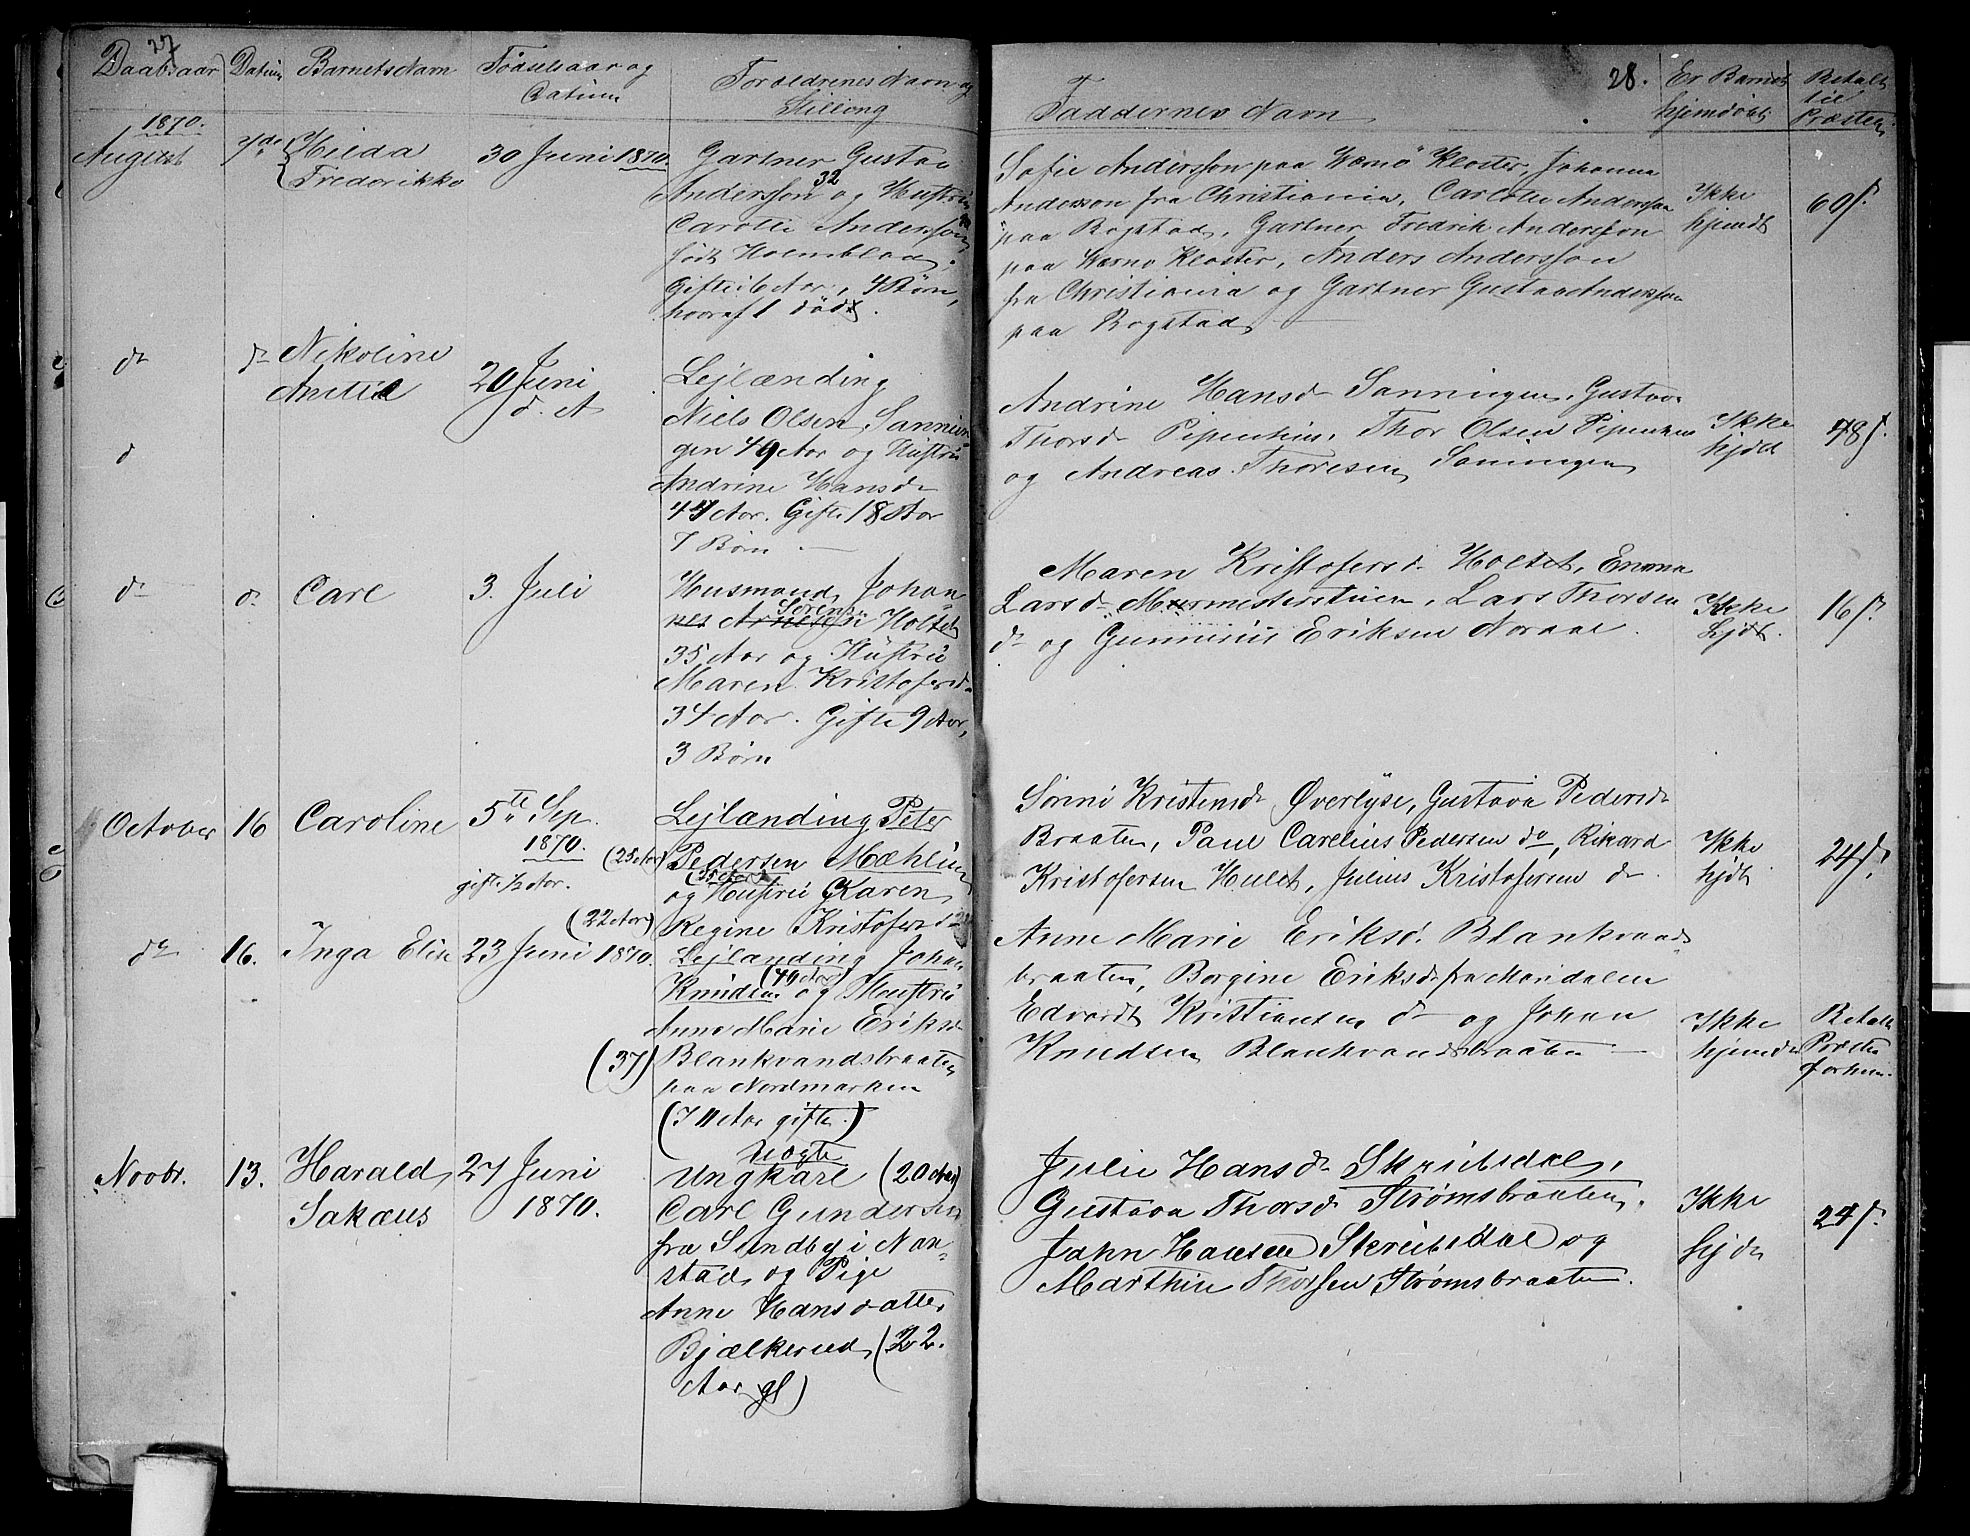 27
Daabsaar
Datum
Barnets Navn
Fødselsaar og
Datum
Forældrenes Navn og
Stilling
1870.
August
7de
Hilda
Fredrikke
30 Juni 1870.
Gartner Gustav
Andersson 32 og Hustru
Carolii Andersson
født Holmblad.
Gifte 6 Aar, 4 Børn,
hvoraf 1 død.
do
do
Nikoline
Anttie
20 Juni
d. A
Lejlænding
Niels Olsen Sannin
gen 49 Aar og Hustru
Andrine Hansd
47 Aar. Gifte 18 Aar
7 Børn
do
do
Carl
3. Juli
Husmand Johan
nes Sørens. Holset
35 Aar og Hustru
Maren Kristofersd
34 Aar. Gifte 9 Aar,
3 Børn
October
16
Caroline
5te Sep.
1870.
gifte 1/2 Aar.
Lejlænding Peter
(25 Aar) Pedersen Mæhlum
og Hustru Karen
(22 Aar) Regine Kristofersd
do
16.
Inga Elise
23 Juni 1870.
Lejlænding Johan
(40 Aar)
Knudsen og Hustru
Anne Marie Eriksd
(37) Blankvandsbraaten
paa Nordmarken
(7 Aar gifte.)
Novbr.
13.
Harald
Sakæus
27 Juni
1870.
Uægte
Ungkarl (20 Aar)
Carl Gundersen
fra Sundby i Nan-
stad og Pige
Anne Hansdatter
Bjælkerud (22.
Aar gl)
28.
Faddernes Navn
Er Barnet
hjemdøbt
Betalt
til
Præsten
Sofie Andersson paa Værnø Kloster, Johanna
Andersson fra Christiania, Carlotte Andersson
paa Bogstad, Gartner Fredrik Andersson
paa Værnø Kloster, Anders Andersson
fra Christiania og Gartner Gustav Andersson
paa Bogstad
Ikke
hjemdt
60 s.
Andrine Hansd Sanningen, Gustava
Thorsd Pipenhus, Thor Olsen Pipenhus
og Andreas Thoresen Saningen
Ikke
hjdt
48 s.
Maren Kristofersd Holset, Emma
Larsd Murmesterstuen, Lars Thorsen
do og Gunnerius Eriksen Voxsæt.
Ikke
hjdt.
16 s.
Sørine Kristensd Øverlyse, Gustava Pedersd
Braaten, Paul Carelius Pedersen do, Rikard
Kristofersen Hulet, Julius Kristofersen do
Ikke
hjdt
24 s.
Anne Marie Eriksd. Blankvands
braaten, Borgine Eriksd fra Maridalen
Edvardt Kristiansen do og Johan
Knudsen Blankvandsbraaten
Ikke
hjemdt
Betalt
Præsten
forhen.
Julie Hansd Skribsdal,
Gustava Thorsd Strømsbraaten,
John Hansen Skribsdal og
Marthin Thorsen Strømsbraaten.
Ikke
hjdt
24 s.